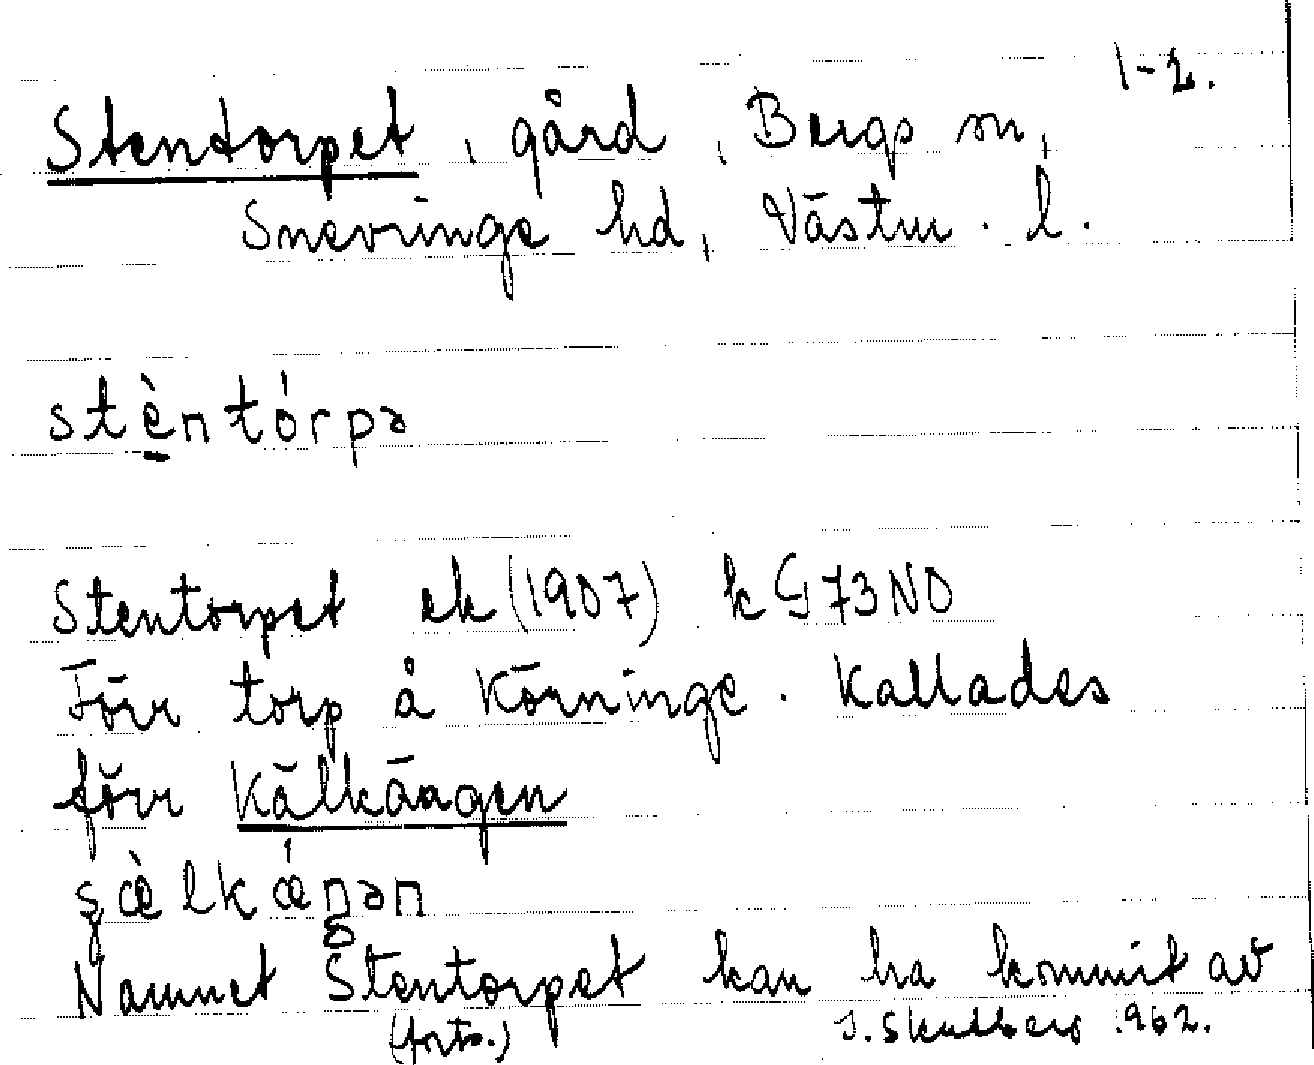 1-2.
Stentorpet, gård, Bergs sn,
Snevringe hd, Västm. l.
stèntórpə
Stentorpet ek (1907) k G 73 NO
Förr torp å Körninge. Kallades
förr Kälkängen
Namnet Stentorpet kan ha kommit av
(forts.)
1962.